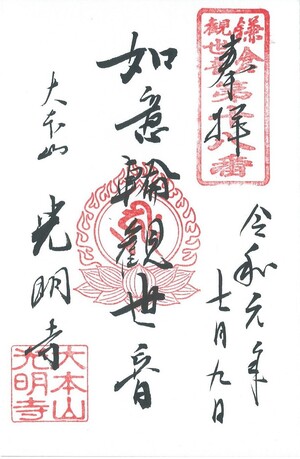 奉拝
鎌倉
観世音
第十八番
令和元年
七月九日
如意輪観世音
大本山
光明寺
大本山
光明寺